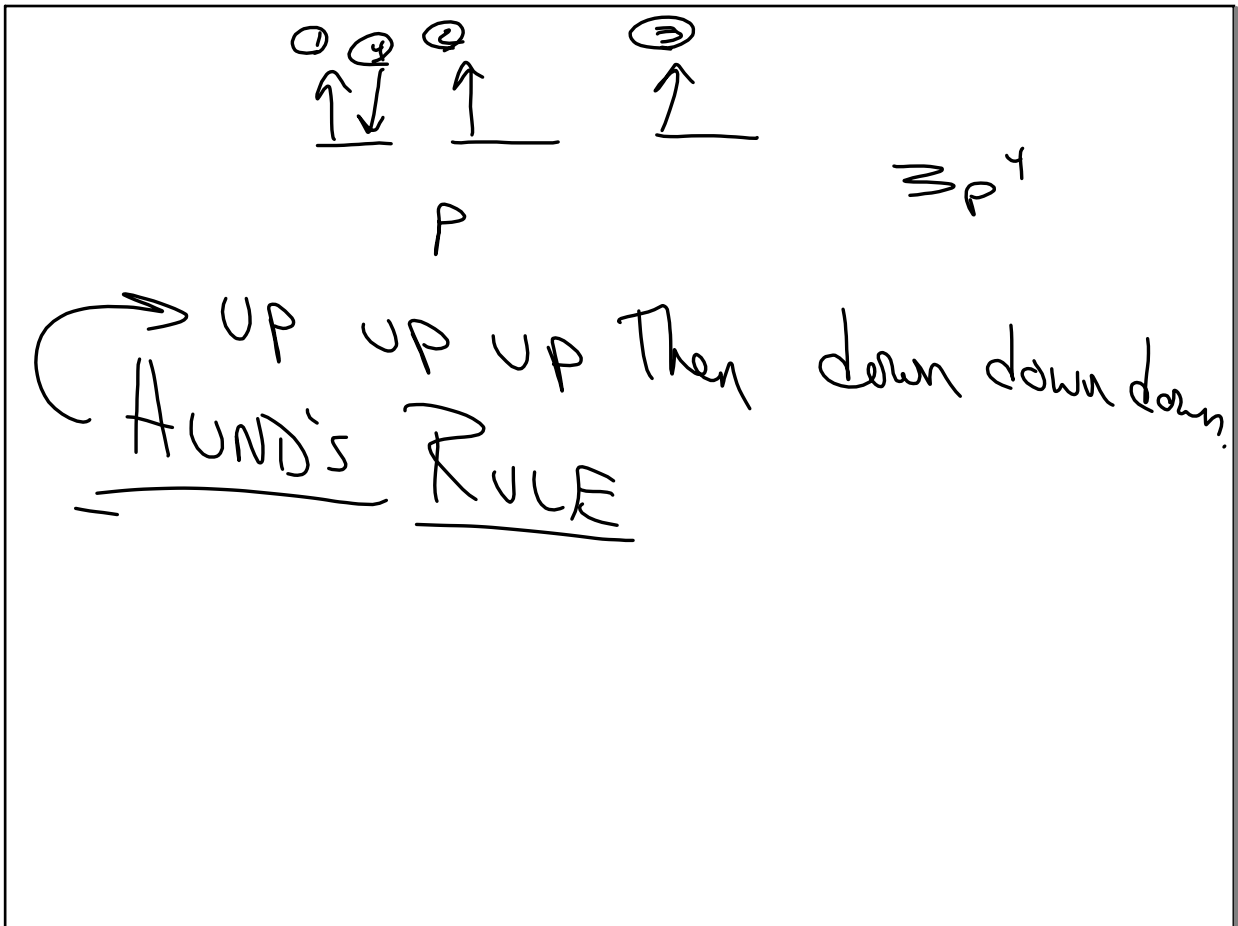 ① ④ ② ③
3p⁴
P
UP UP UP Then down down down.
HUND'S RULE